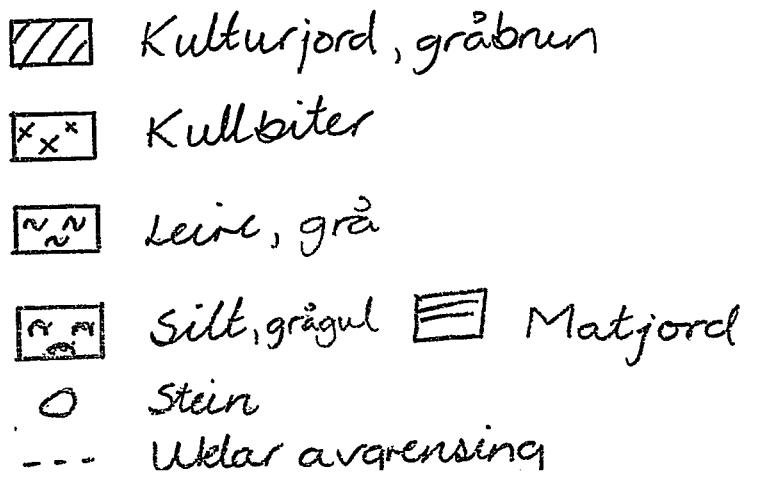 Kulturjord, gråbrun
Kullbiter
Leire, grå
Silt, grågul Matjord
Stein
Uklar avgrensing